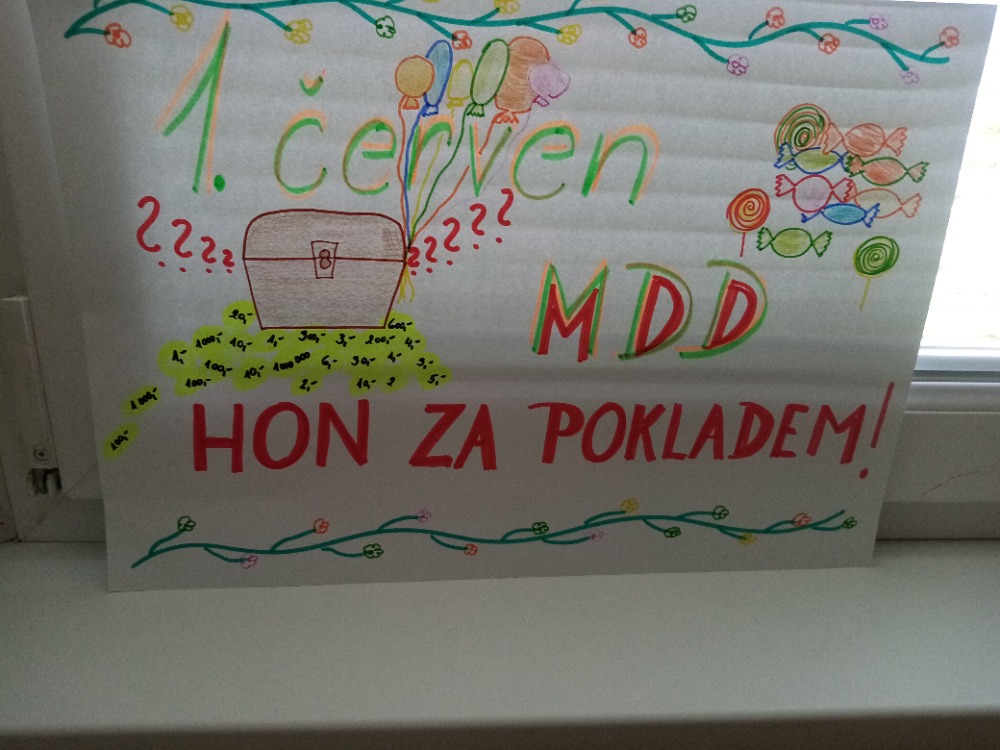 1. červen
? ? ? ? ? ? ? ? ?
MDD
20,- 600,-
1,- 1000,- 10,- 1,- 300,- 3,- 200,- 4,-
100,- 10,- 1000000 6,- 30,- 1,- 3,-
1000,- 100,- 2,- 10,- 2 5,-
100,-
HON ZA POKLADEM!